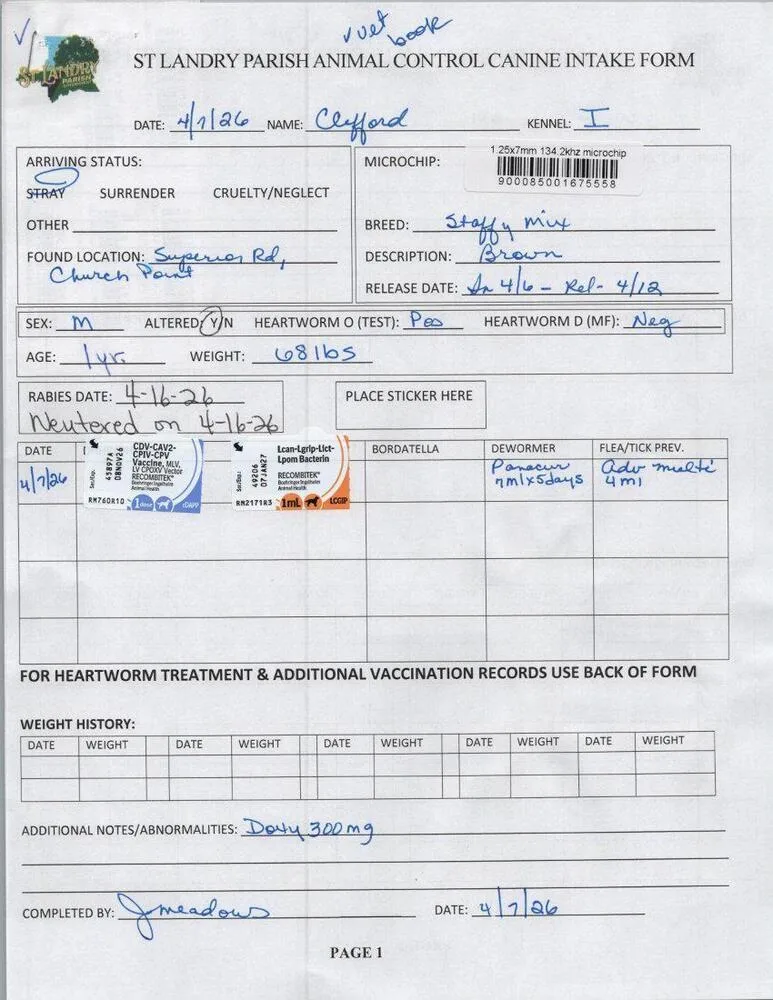 ✓ vet book
ST LANDRY PARISH
ST LANDRY PARISH ANIMAL CONTROL CANINE INTAKE FORM
DATE: 4/7/26 NAME: Clifford KENNEL: I
ARRIVING STATUS:
STRAY SURRENDER CRUELTY/NEGLECT
OTHER
FOUND LOCATION: Superior Rd,
Church Point
MICROCHIP:
1.25x7mm 134.2khz microchip
900085001675558
BREED: Staffy mix
DESCRIPTION: Brown
RELEASE DATE: In 4/6 - Rel - 4/12
SEX: M ALTERED: Y/N HEARTWORM O (TEST): Pos HEARTWORM D (MF): Neg
AGE: 1 yr. WEIGHT: 68 lbs
RABIES DATE: 4-16-26
Neutered on 4-16-26
PLACE STICKER HERE
DATE BORDATELLA DEWORMER FLEA/TICK PREV.
4/7/26
CDV-CAV2-
CPIV-CPV
Vaccine, MLV,
LV CPOXV Vector
RECOMBITEK
Boehringer Ingelheim
Animal Health
Ser/Exp.
45897A
08NOV26
RM760R10 1 dose cDAPP
Lcan-Lgrip-Lict-
Lpom Bacterin
RECOMBITEK
Boehringer Ingelheim
Animal Health
Ser/Exp.
49206
07JAN27
RM2171R3 1mL LCGIP
Panacur
7ml x 5days
Adv multi
4ml
FOR HEARTWORM TREATMENT & ADDITIONAL VACCINATION RECORDS USE BACK OF FORM
WEIGHT HISTORY:
DATE WEIGHT DATE WEIGHT DATE WEIGHT DATE WEIGHT DATE WEIGHT
ADDITIONAL NOTES/ABNORMALITIES: Doxy 300mg
COMPLETED BY: J meadows DATE: 4/7/26
PAGE 1